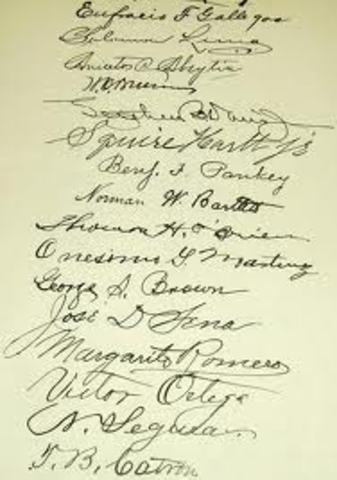 Eufracio F Gallegos
Solomon Luna
Aniceto C Abeytia
W. E.
Stephen B Davis Jr
Squire Hartt Jr
Benj. F Pankey
Norman W. Bartlett
Thomas H. O'Brien
Onesimo G. Martinez
George S. Brown
José D Sena
Margarito Romero
Victor Ortega
N. Segura
T. B. Catron